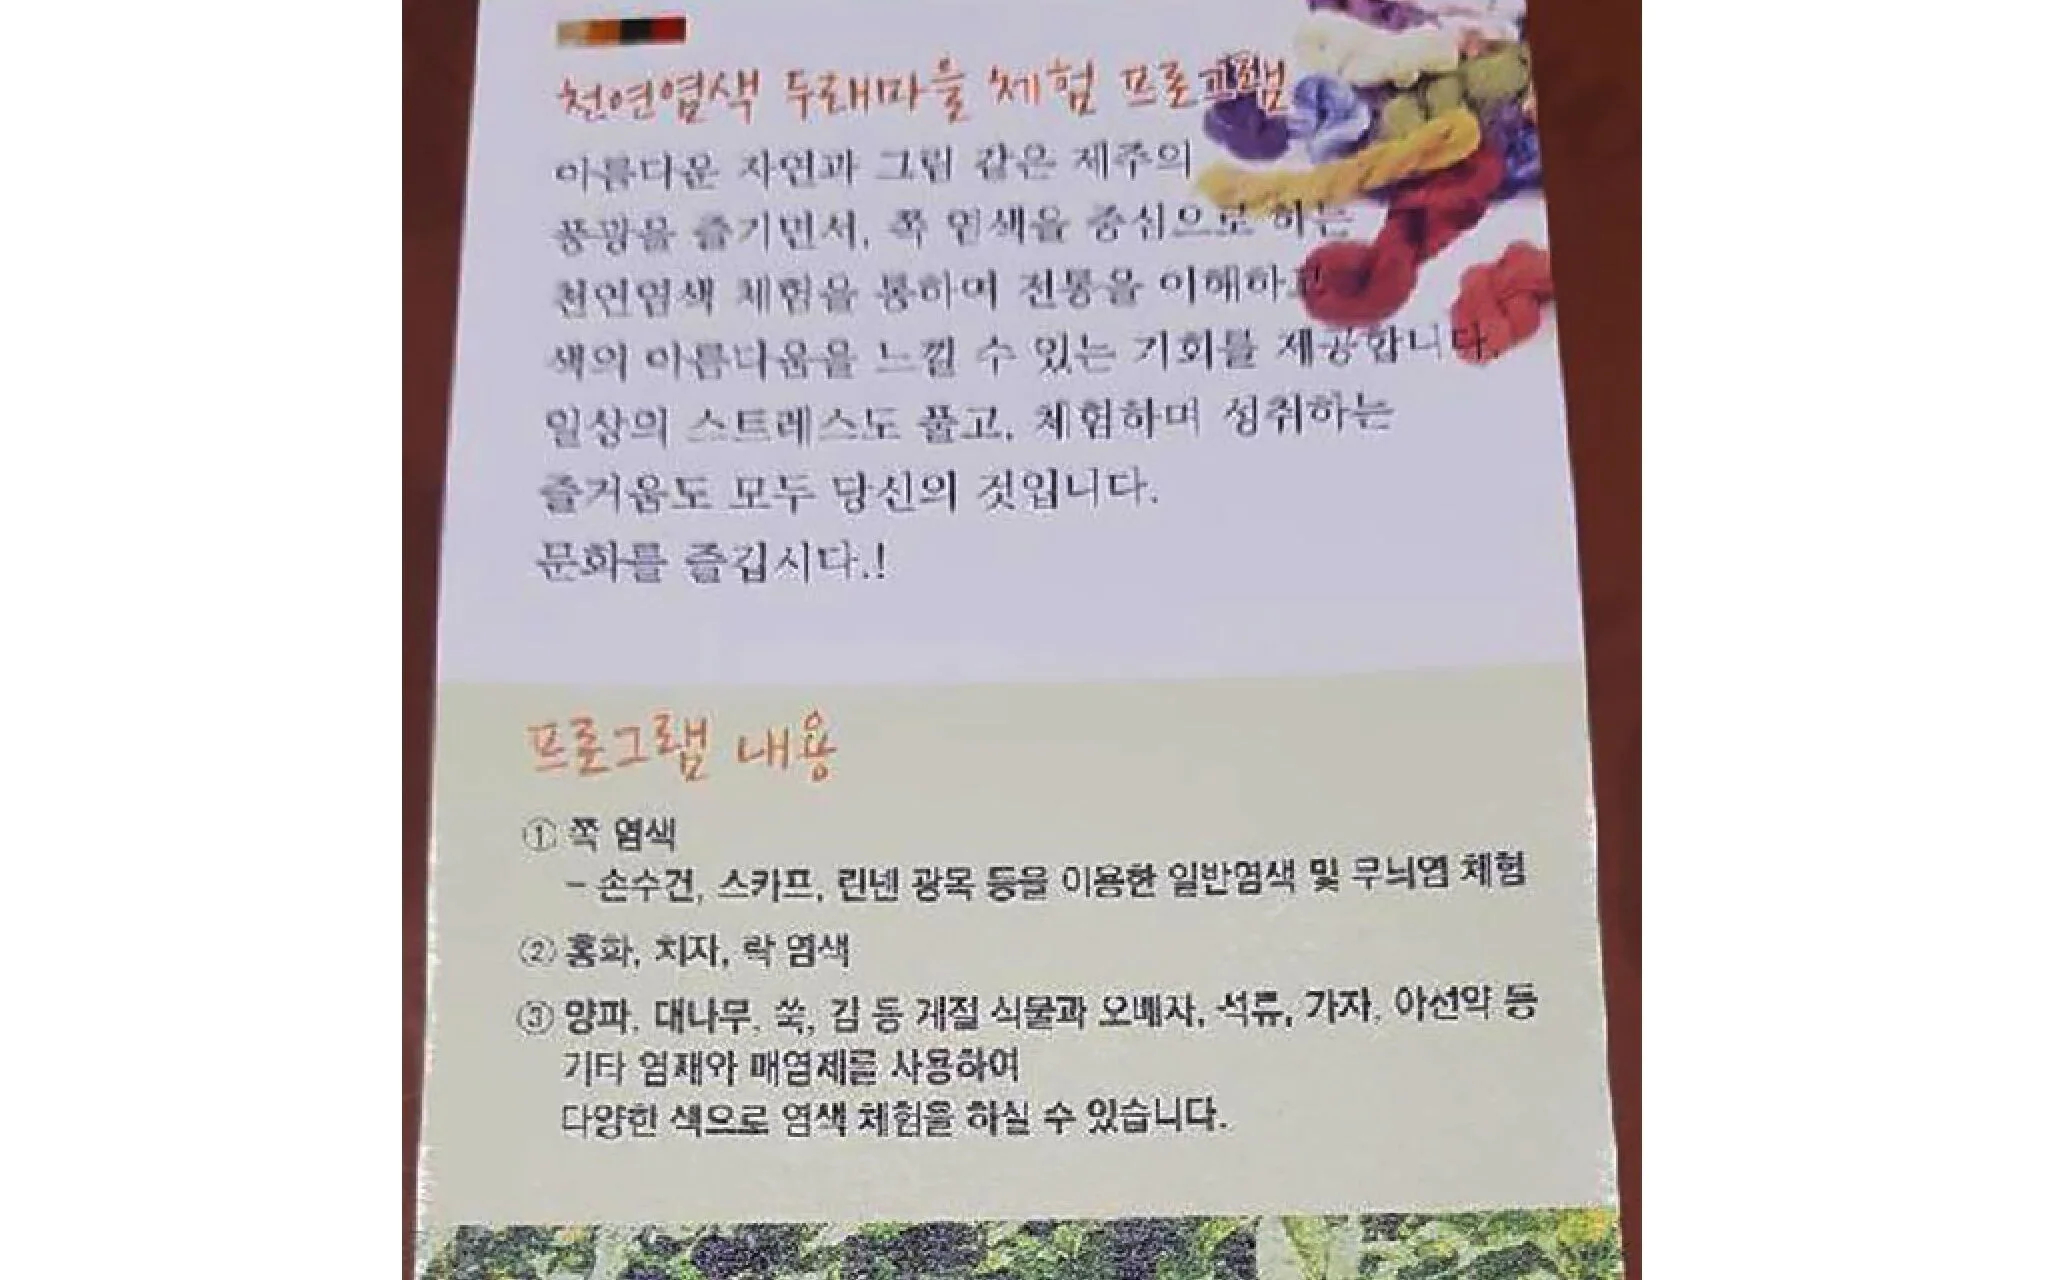 천연염색 두래마을 체험 프로그램
아름다운 자연과 그림 같은 제주의
풍광을 즐기면서, 쪽 염색을 중심으로 하는
천연염색 체험을 통하여 전통을 이해하고
색의 아름다움을 느낄 수 있는 기회를 제공합니다.
일상의 스트레스도 풀고, 체험하며 성취하는
즐거움도 모두 당신의 것입니다.
문화를 즐깁시다.!
프로그램 내용
① 쪽 염색
- 손수건, 스카프, 린넨 광목 등을 이용한 일반염색 및 무늬염 체험
② 홍화, 치자, 락 염색
③ 양파, 대나무, 쑥, 감 등 계절 식물과 오배자, 석류, 가자, 아선약 등
기타 염재와 매염제를 사용하여
다양한 색으로 염색 체험을 하실 수 있습니다.